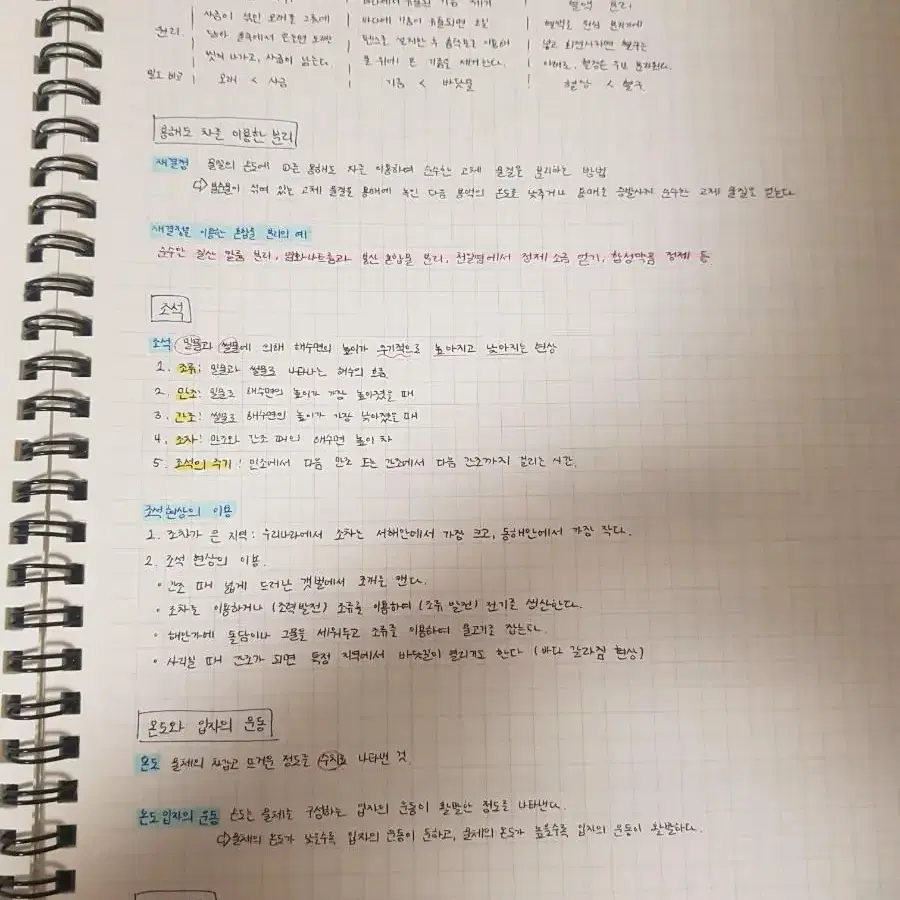 바다에서 유출된 기름 제거
혈액 분리
원리
사금이 섞인 모래를 그릇에
바다에 기름이 유출되면 오일
혈액을 원심 분리기에
담아 물속에서 흔들면 모래만
펜스로 설치한 후 흡착포를 이용해
넣고 회전시키면 혈구는
씻겨 나가고, 사금이 남는다.
물 위에 뜬 기름을 제거한다.
아래로, 혈장은 위로 분리된다.
밀도 비교
모래 < 사금
기름 < 바닷물
혈장 < 혈구
용해도 차를 이용한 분리
재결정 물질의 온도에 따른 용해도 차를 이용하여 순수한 고체 물질을 분리하는 방법
⇨ 불순물이 섞여 있는 고체 물질을 용매에 녹인 다음 용액의 온도를 낮추거나 용매를 증발시켜 순수한 고체 물질을 얻는다
재결정을 이용한 혼합물 분리의 예
순수한 질산 칼륨 분리, 염화나트륨과 붕산 혼합물 분리, 천일염에서 정제 소금 얻기, 합성약품 정제 등
조석
조석 밀물과 썰물에 의해 해수면의 높이가 주기적으로 높아지고 낮아지는 현상
1. 조류: 밀물과 썰물로 나타나는 해수의 흐름
2. 만조: 밀물로 해수면의 높이가 가장 높아졌을 때
3. 간조: 썰물로 해수면의 높이가 가장 낮아졌을 때
4. 조차: 만조와 간조 때의 해수면 높이 차
5. 조석의 주기: 만조에서 다음 만조 또는 간조에서 다음 간조까지 걸리는 시간.
조석현상의 이용
1. 조차가 큰 지역: 우리나라에서 조차는 서해안에서 가장 크고, 동해안에서 가장 작다.
2. 조석 현상의 이용.
• 간조 때 넓게 드러난 갯벌에서 조개를 캔다.
• 조차를 이용하거나 (조력발전) 조류를 이용하여 (조류 발전) 전기를 생산한다.
• 해안가에 돌담이나 그물을 세워두고 조류를 이용하여 물고기를 잡는다.
• 사리일 때 간조가 되면 특정 지역에서 바닷길이 열리기도 한다 (바다 갈라짐 현상)
온도와 입자의 운동
온도 물체의 차갑고 뜨거운 정도를 수치로 나타낸 것.
온도 입자의 운동 온도는 물체를 구성하는 입자의 운동이 활발한 정도를 나타낸다.
⇨ 물체의 온도가 낮을수록 입자의 운동이 둔하고, 물체의 온도가 높을수록 입자의 운동이 활발하다.